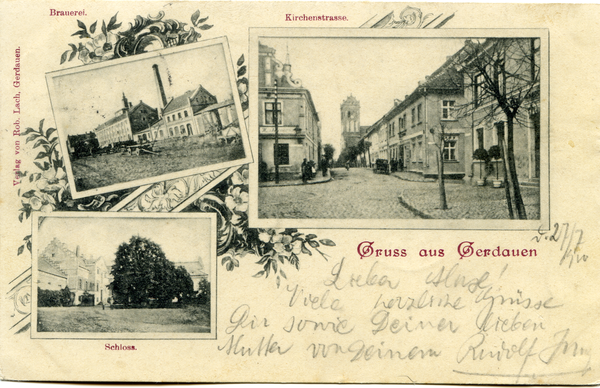 Brauerei.
Kirchenstrasse.
Verlag von Rob. Lach, Gerdauen.
Gruss aus Gerdauen
Schloss.
d. 27/7
Lieber
Viele herzliche Grüsse
Dir sowie Deiner lieben
Mutter von Deinem Rudolf